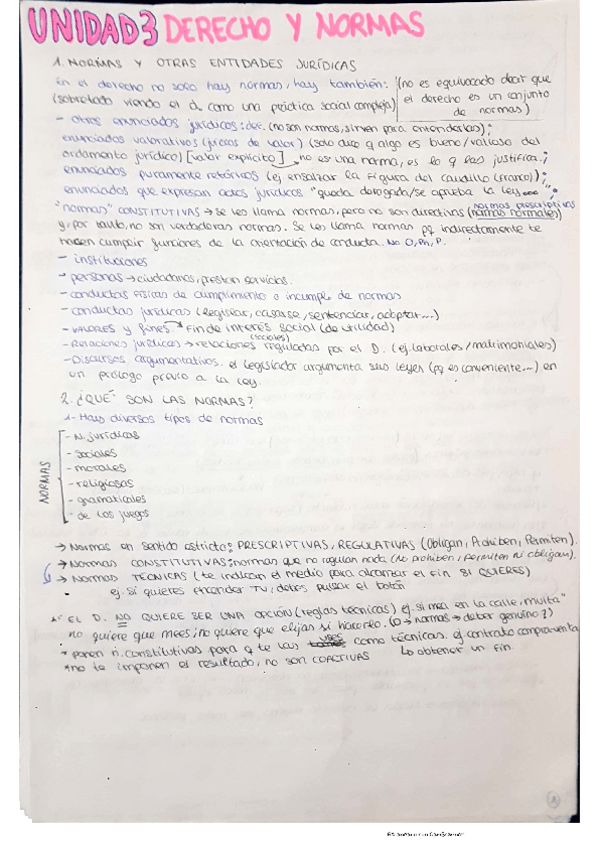 UNIDAD 3 DERECHO Y NORMAS
1. NORMAS Y OTRAS ENTIDADES JURÍDICAS
En el derecho no solo hay normas, hay también: (no es equivocado decir que
(sobretodo viendo el d. como una práctica social compleja) el derecho es un conjunto
de normas)
- otros enunciados jurídicos: def. (no son normas, sirven para entenderlas);
enunciados valorativos (juicios de valor) (solo dice q algo es bueno/valioso del
ordamento jurídico) [valor explícito] → no es una norma, es lo q las justifica.;
enunciados puramente retóricos (ej ensalzar la figura del caudillo (franco));
enunciados que expresan actos jurídicos "queda derogada/se aprueba la ley...".
normas prescriptivas
"normas" CONSTITUTIVAS → se les llama normas, pero no son directivas (normas normales)
y, por tanto, no son verdaderas normas. Se les llama normas pq indirectamente te
hacen cumplir funciones de la orientación de conducta. No O, Ph, P.
- instituciones
- personas → ciudadanos, prestan servicios.
- conductas físicas de cumplimiento o incumple. de normas
- conductas jurídicas (legislar, casarse, sentenciar, adoptar...)
- VALORES y fines → fin de interés social (de utilidad)
(sociales)
- Relaciones jurídicas → relaciones reguladas por el D. (ej. laborales/matrimoniales)
- Discursos argumentativos. el legislador argumenta sus leyes (pq es conveniente...) en
un prólogo previo a la ley.
2. ¿QUÉ SON LAS NORMAS?
1- Hay diversos tipos de normas
NORMAS
- N. jurídicas
- sociales
- morales
- religiosas
- gramaticales
- de los juegos
→ Normas en sentido estricto: PRESCRIPTIVAS, REGULATIVAS (Obligan, Prohiben, Permiten).
→ NORMAS CONSTITUTIVAS: normas que no regulan nada (no prohiben, permiten ni obligan).
→ NORMAS TÉCNICAS (te indican el medio para alcanzar el fin SI QUIERES)
• ej. si quieres encender TV, debes pulsar el botón
EL D. NO QUIERE SER UNA OPCIÓN (reglas técnicas) ej. si mea en la calle, multa"
no quiere que mees; no quiere que elijas si hacerlo. (D → normas → deber genuino?)
uses
• ponen n. constitutivas para q te las como técnicas. ej contrato compraventa
↳ obtener un fin.
*no te imponen el resultado, no son COACTIVAS